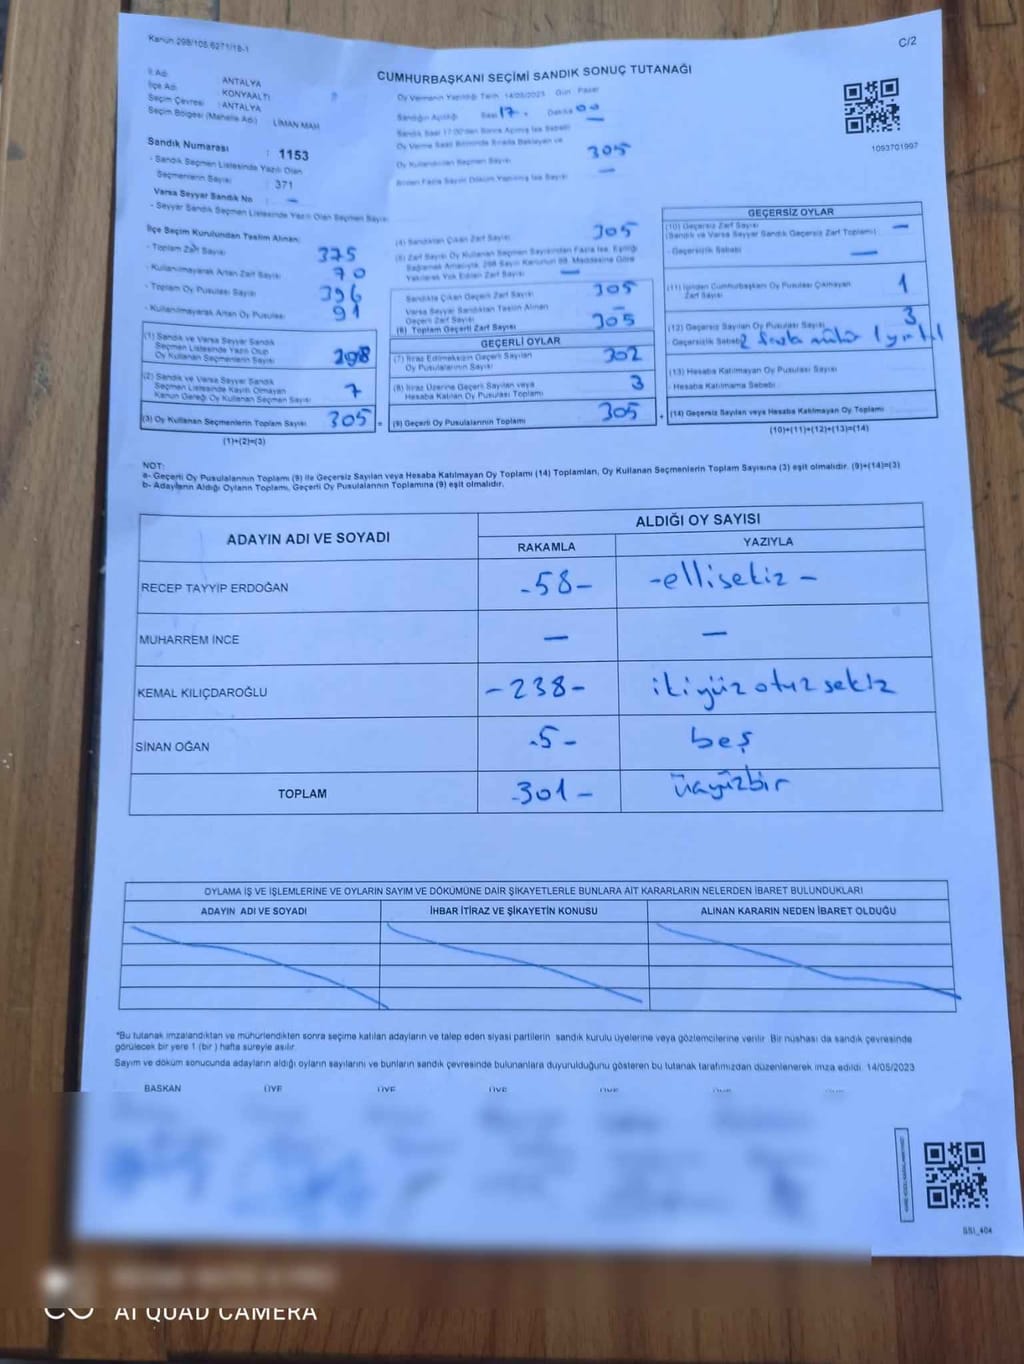 Kanun 298/105 6271/18-1
C/2
CUMHURBAŞKANI SEÇİMİ SANDIK SONUÇ TUTANAĞI
İl Adı : ANTALYA
İlçe Adı : KONYAALTI
Seçim Çevresi : ANTALYA
Seçim Bölgesi (Mahalle Adı) : LİMAN MAH
Oy Vermenin Yapıldığı Tarih 14/05/2023 Gün Pazar
Sandığın Açıldığı Saat 17 Dakika 00
1093701997
Sandık Numarası : 1153
- Sandık Seçmen Listesinde Yazılı Olan
Seçmenlerin Sayısı : 371
Varsa Seyyar Sandık No : —
- Seyyar Sandık Seçmen Listesinde Yazılı Olan Seçmen Sayısı
Sandık Saat 17:00'den Sonra Açılmış İse Sebebi —
Oy Verme Saati Bitiminde Sırada Bekleyen ve
Oy Kullandırılan Seçmen Sayısı 305
Birden Fazla Sayım Döküm Yapılmış İse Sayısı —
İlçe Seçim Kurulundan Teslim Alınan:
- Toplam Zarf Sayısı 375
- Kullanılmayarak Artan Zarf Sayısı 70
- Toplam Oy Pusulası Sayısı 396
- Kullanılmayarak Artan Oy Pusulası 91
(1) Sandık ve Varsa Seyyar Sandık
Seçmen Listesinde Yazılı Olup
Oy Kullanan Seçmenlerin Sayısı 298
(2) Sandık ve Varsa Seyyar Sandık
Seçmen Listesinde Kayıtlı Olmayan
Kanun Gereği Oy Kullanan Seçmen Sayısı 7
(3) Oy Kullanan Seçmenlerin Toplam Sayısı 305 =
(1)+(2)=(3)
(4) Sandıktan Çıkan Zarf Sayısı 305
(5) Zarf Sayısı Oy Kullanan Seçmen Sayısından Fazla İse, Eşitliği
Sağlamak Amacıyla, 298 Sayılı Kanunun 98. Maddesine Göre
Yakılarak Yok Edilen Zarf Sayısı —
Sandıkta Çıkan Geçerli Zarf Sayısı 305
Varsa Seyyar Sandıktan Teslim Alınan
Geçerli Zarf Sayısı —
(6) Toplam Geçerli Zarf Sayısı 305
GEÇERLİ OYLAR
(7) İtiraz Edilmeksizin Geçerli Sayılan
Oy Pusulalarının Sayısı 302
(8) İtiraz Üzerine Geçerli Sayılan veya
Hesaba Katılan Oy Pusulası Toplamı 3
(9) Geçerli Oy Pusulalarının Toplamı 305 +
GEÇERSİZ OYLAR
(10) Geçersiz Zarf Sayısı
(Sandık ve Varsa Seyyar Sandık Geçersiz Zarf Toplamı) —
- Geçersizlik Sebebi —
(11) İçinden Cumhurbaşkanı Oy Pusulası Çıkmayan
Zarf Sayısı 1
(12) Geçersiz Sayılan Oy Pusulası Sayısı 3
- Geçersizlik Sebebi 2 fazla mühür 1 yırtıl
(13) Hesaba Katılmayan Oy Pusulası Sayısı
- Hesaba Katılmama Sebebi
(14) Geçersiz Sayılan veya Hesaba Katılmayan Oy Toplamı
(10)+(11)+(12)+(13)=(14)
NOT:
a- Geçerli Oy Pusulalarının Toplamı (9) ile Geçersiz Sayılan veya Hesaba Katılmayan Oy Toplamı (14) Toplamları, Oy Kullanan Seçmenlerin Toplam Sayısına (3) eşit olmalıdır. (9)+(14)=(3)
b- Adayların Aldığı Oyların Toplamı, Geçerli Oy Pusulalarının Toplamına (9) eşit olmalıdır.
ADAYIN ADI VE SOYADI
ALDIĞI OY SAYISI
RAKAMLA YAZIYLA
RECEP TAYYİP ERDOĞAN -58- -ellisekiz-
MUHARREM İNCE — —
KEMAL KILIÇDAROĞLU -238- ikiyüzotuzsekiz
SİNAN OĞAN -5- beş
TOPLAM -301- üçyüzbir
OYLAMA İŞ VE İŞLEMLERİNE VE OYLARIN SAYIM VE DÖKÜMÜNE DAİR ŞİKAYETLERLE BUNLARA AİT KARARLARIN NELERDEN İBARET BULUNDUKLARI
ADAYIN ADI VE SOYADI İHBAR İTİRAZ VE ŞİKAYETİN KONUSU ALINAN KARARIN NEDEN İBARET OLDUĞU
*Bu tutanak imzalandıktan ve mühürlendikten sonra seçime katılan adayların ve talep eden siyasi partilerin sandık kurulu üyelerine veya gözlemcilerine verilir. Bir nüshası da sandık çevresinde
görülecek bir yere 1 (bir) hafta süreyle asılır.
Sayım ve döküm sonucunda adayların aldığı oyların sayılarını ve bunların sandık çevresinde bulunanlara duyurulduğunu gösteren bu tutanak tarafımızdan düzenlenerek imza edildi. 14/05/2023
BAŞKAN ÜYE ÜYE ÜYE ÜYE ÜYE ÜYE
SSI_404
AI QUAD CAMERA